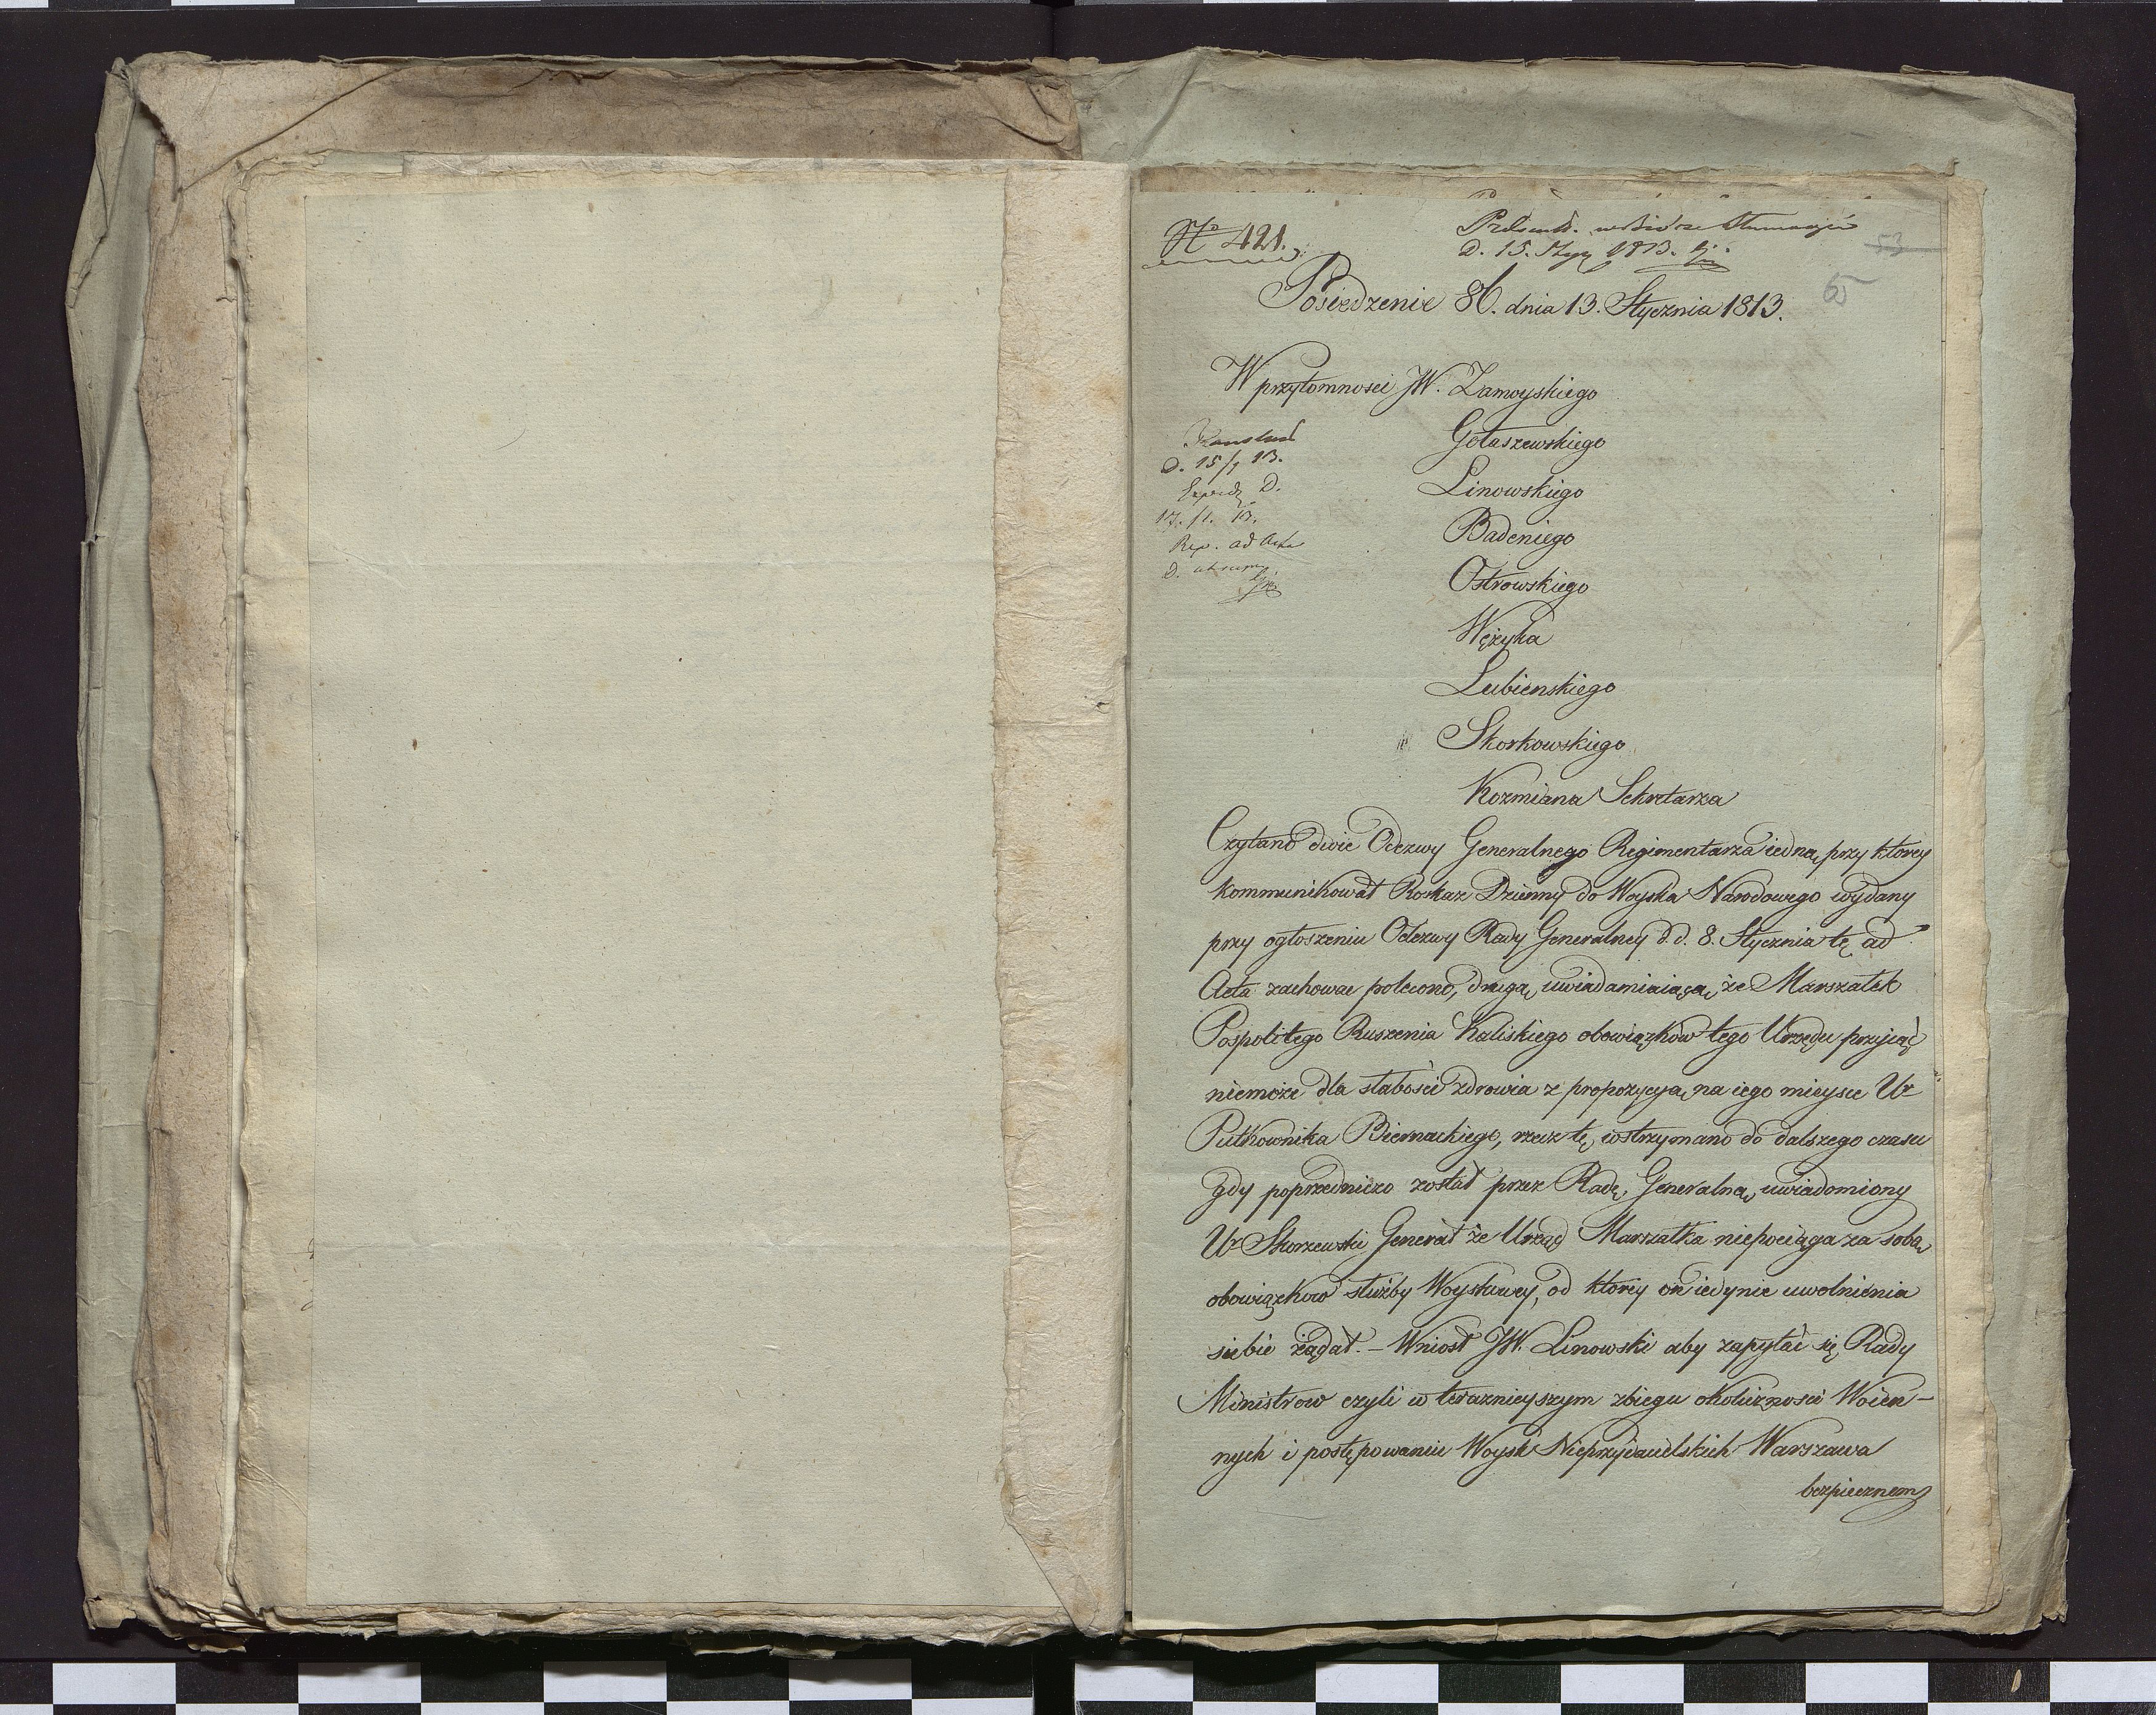 No 421.
D. 15. Stycz 1813.
53
65
Posiedzenie 86. dnia 13. Stycznia 1813.
W przytomnosci JW. Zamoyskiego
Gołaszewskiego
Linowskiego
Badeniego
Ostrowskiego
Wężyka
Lubienskiego
Skorkowskiego
Kozmiana Sekretarza
D. 15/1 13.
D.
17. /1. 13.
Rep. ad Acta
D. ut supra
Czytano dwie Odezwy Generalnego Regimentarza iedną, przy ktorey
kommunikował Roskaz Dzienny do Woyska Narodowego wydany
przy ogłoszeniu Odezwy Rady Generalney d. d. 8. Stycznia tę ad
Acta zachowac polecono, drugą uwiadamiaiącą że Marszałek
Pospolitego Ruszenia Kaliskiego obowiązków tego Urzędu przyiąć
niemoże dla słabości zdrowia z propozycyą na iego mieysce Ur
Pułkownika Biernackiego, rzecz tę wstrzymano do dalszego czasu
gdy poprzedniczo został przez Radę Generalną uwiadomiony
Ur Skorzewski Generał że Urząd Marszałka niepociąga za sobą
obowiązkow służby Woyskowey, od ktorey on iedynie uwolnienia
siebie żądał. – Wniosł JW. Linowski aby zapytać się Rady
Ministrow czyli w teraznieyszym zbiegu okoliczności Woien-
nych i postępowaniu Woysk Nieprzyiacielskich Warszawa
bezpiecznem